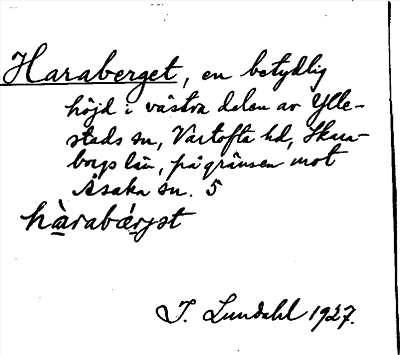 Haraberget, en betydlig
höjd i västra delen av Ylle-
stads sn, Vartofta hd, Skara-
borgs län, på gränsen mot
Åsaka sn. 5
hàrabærjət
I. Lundahl 1927.